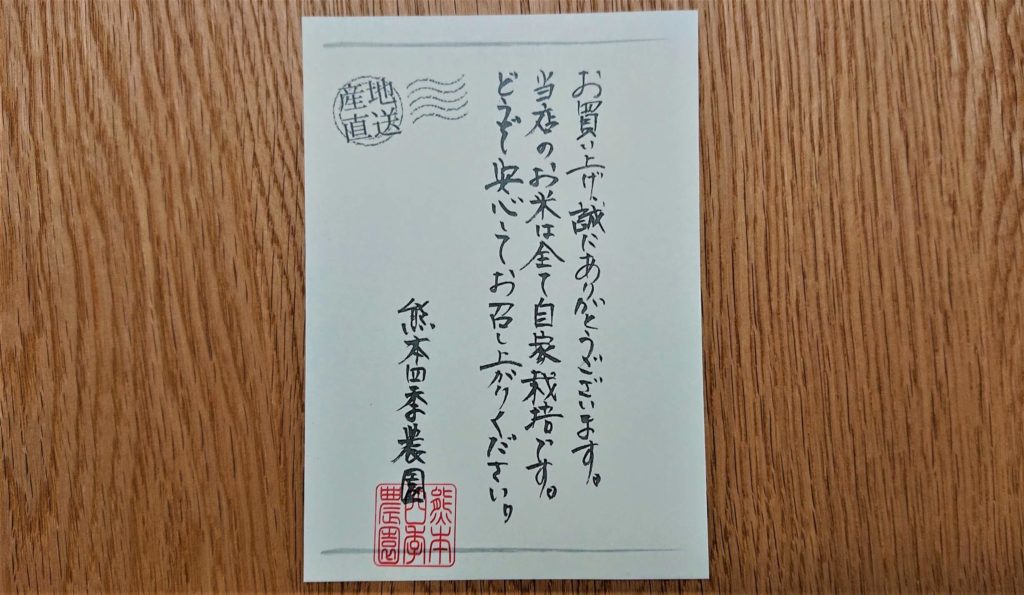 お買い上げ誠にありがとうございます。
当店のお米は全て自家栽培です。
どうぞ安心してお召し上がりください。
熊本四季農園
産地
直送
熊本
四季
農園